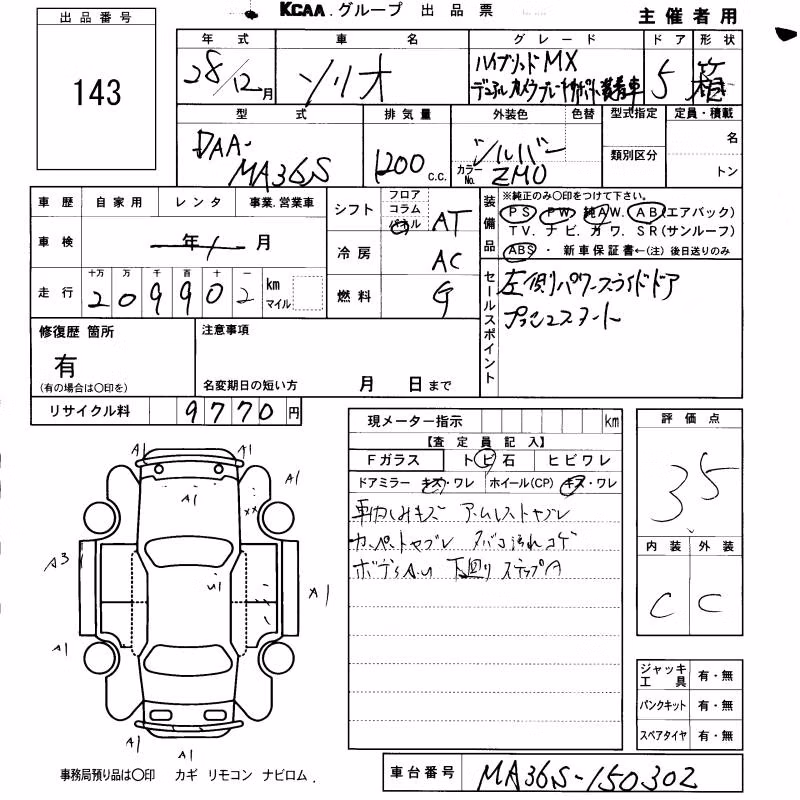 KCAA.グループ 出品票
主催者用
出品番号
143
年式 車名 グレード ドア 形状
28/12月 ソリオ ハイブリッドMX
デュアルカメラブレーキサポート装着車 5 箱
型式 排気量 外装色 色替 型式指定 定員・積載
DAA-
MA36S
1200 c.c.
シルバー
カラーNo. ZM0
類別区分
名
トン
車歴 自家用 レンタ 事業.営業車
車検 年 / 月
走行 十万 万 千 百 十 一
209902 km
マイル
シフト フロア コラム パネル AT
冷房 AC
燃料 G
装備品
※純正のみ○印をつけて下さい。
PS PW 純AW. AB(エアバック)
TV. ナビ. カワ. SR(サンルーフ)
ABS ・ 新車保証書←(注) 後日送りのみ
セールスポイント
左側パワースライドドア
プッシュスタート
修復歴 箇所
有
(有の場合は○印を)
注意事項
名変期日の短い方 月 日まで
リサイクル料 9770円
現メーター指示 km
【査定員記入】
Fガラス トビ石 ヒビワレ
ドアミラー キズ・ワレ ホイール(CP) キズ・ワレ
車内しみキズ アームレストヤブレ
カーペットヤブレ タバコ汚れコゲ
ボディA.U 下回り ステップA
評価点
35
内装 外装
C C
A1 A1
A1 A1
XX
A3
U1
A1
A1
A1 A1
ジャッキ工具 有・無
パンクキット 有・無
スペアタイヤ 有・無
事務局預り品は○印 カギ リモコン ナビロム.
車台番号 MA36S-150302